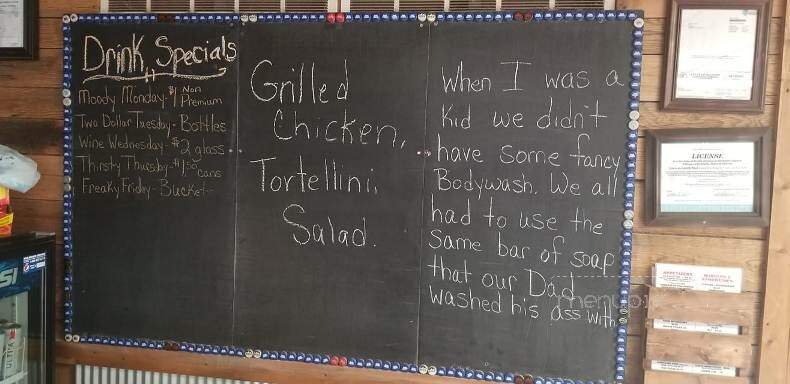 Drink Specials
Moody Monday - $1 Non Premium
Two Dollar Tuesday - Bottles
Wine Wednesday - $2 glass
Thirsty Thursday - $1.50 cans
Freaky Friday - Bucket
Grilled
Chicken,
Tortellini,
Salad.
When I was a
Kid we didn't
have some fancy
Bodywash. We all
had to use the
same bar of soap
that our Dad
washed his ass with
LICENSE
APPETIZERS